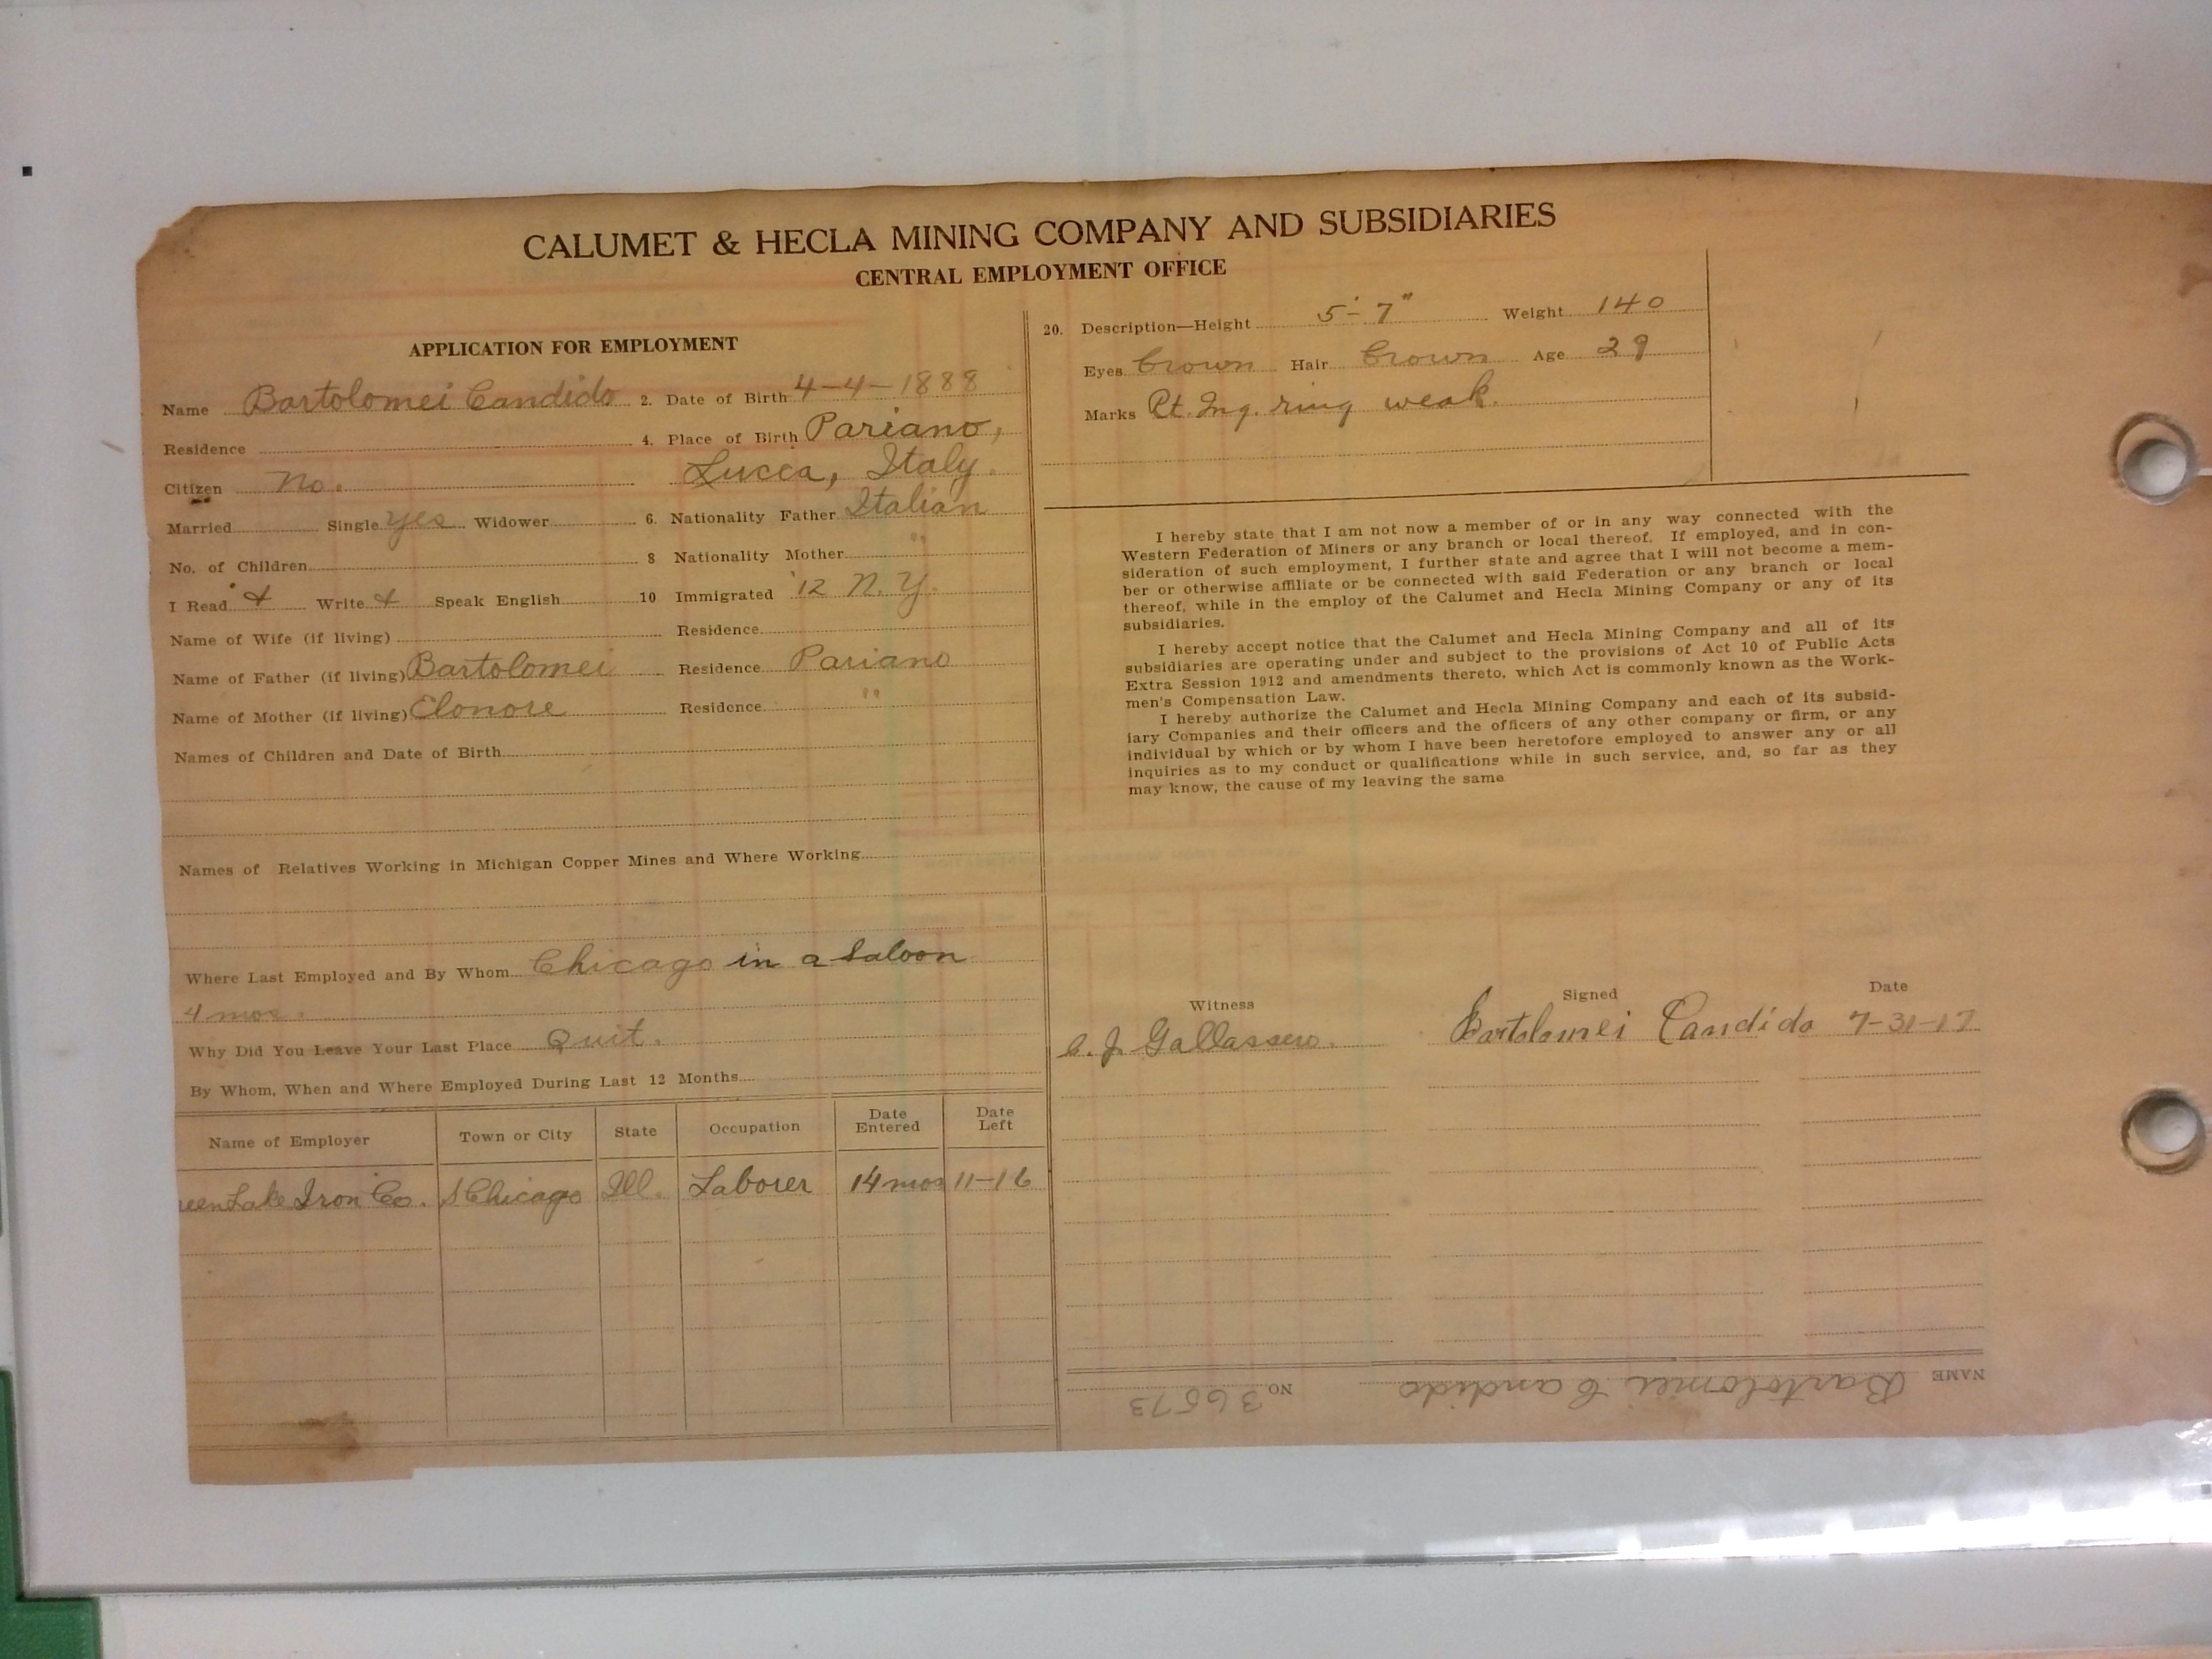 CALUMET & HECLA MINING COMPANY AND SUBSIDIARIES
CENTRAL EMPLOYMENT OFFICE
APPLICATION FOR EMPLOYMENT
Name Bartolomei Candido 2. Date of Birth 4-4-1888
Residence 4. Place of Birth Pariano,
Citizen No. Lucca, Italy.
Married Single yes Widower 6. Nationality Father Italian
No. of Children 8 Nationality Mother "
I Read Write Speak English 10 Immigrated '12 N.Y.
Name of Wife (if living) Residence
Name of Father (if living) Bartolomei Residence Pariano
Name of Mother (if living) Elonore Residence "
Names of Children and Date of Birth
Names of Relatives Working in Michigan Copper Mines and Where Working
Where Last Employed and By Whom Chicago in a Saloon
4 mos.
Why Did You Leave Your Last Place Quit.
By Whom, When and Where Employed During Last 12 Months
Name of Employer Town or City State Occupation Date Entered Date Left
reen Lake Iron Co. S Chicago Ill. Laborer 14 mos 11-16
20. Description—Height 5'-7" Weight 140
Eyes brown Hair brown Age 29
Marks Rt. Ing. ring weak.
I hereby state that I am not now a member of or in any way connected with the
Western Federation of Miners or any branch or local thereof. If employed, and in con-
sideration of such employment, I further state and agree that I will not become a mem-
ber or otherwise affiliate or be connected with said Federation or any branch or local
thereof, while in the employ of the Calumet and Hecla Mining Company or any of its
subsidiaries.
I hereby accept notice that the Calumet and Hecla Mining Company and all of its
subsidiaries are operating under and subject to the provisions of Act 10 of Public Acts
Extra Session 1912 and amendments thereto, which Act is commonly known as the Work-
men's Compensation Law.
I hereby authorize the Calumet and Hecla Mining Company and each of its subsid-
iary Companies and their officers and the officers of any other company or firm, or any
individual by which or by whom I have been heretofore employed to answer any or all
inquiries as to my conduct or qualifications while in such service, and, so far as they
may know, the cause of my leaving the same
Witness Signed Date
Bartolomei Candido 7-31-17
NAME Bartolomei Candido NO. 36573